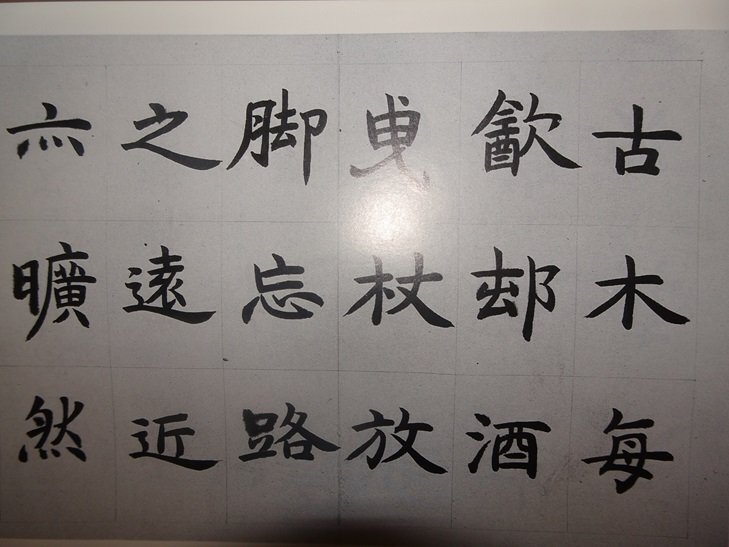 古木每
㱃邨酒
曳杖放
脚忘路
之遠近
亦曠然